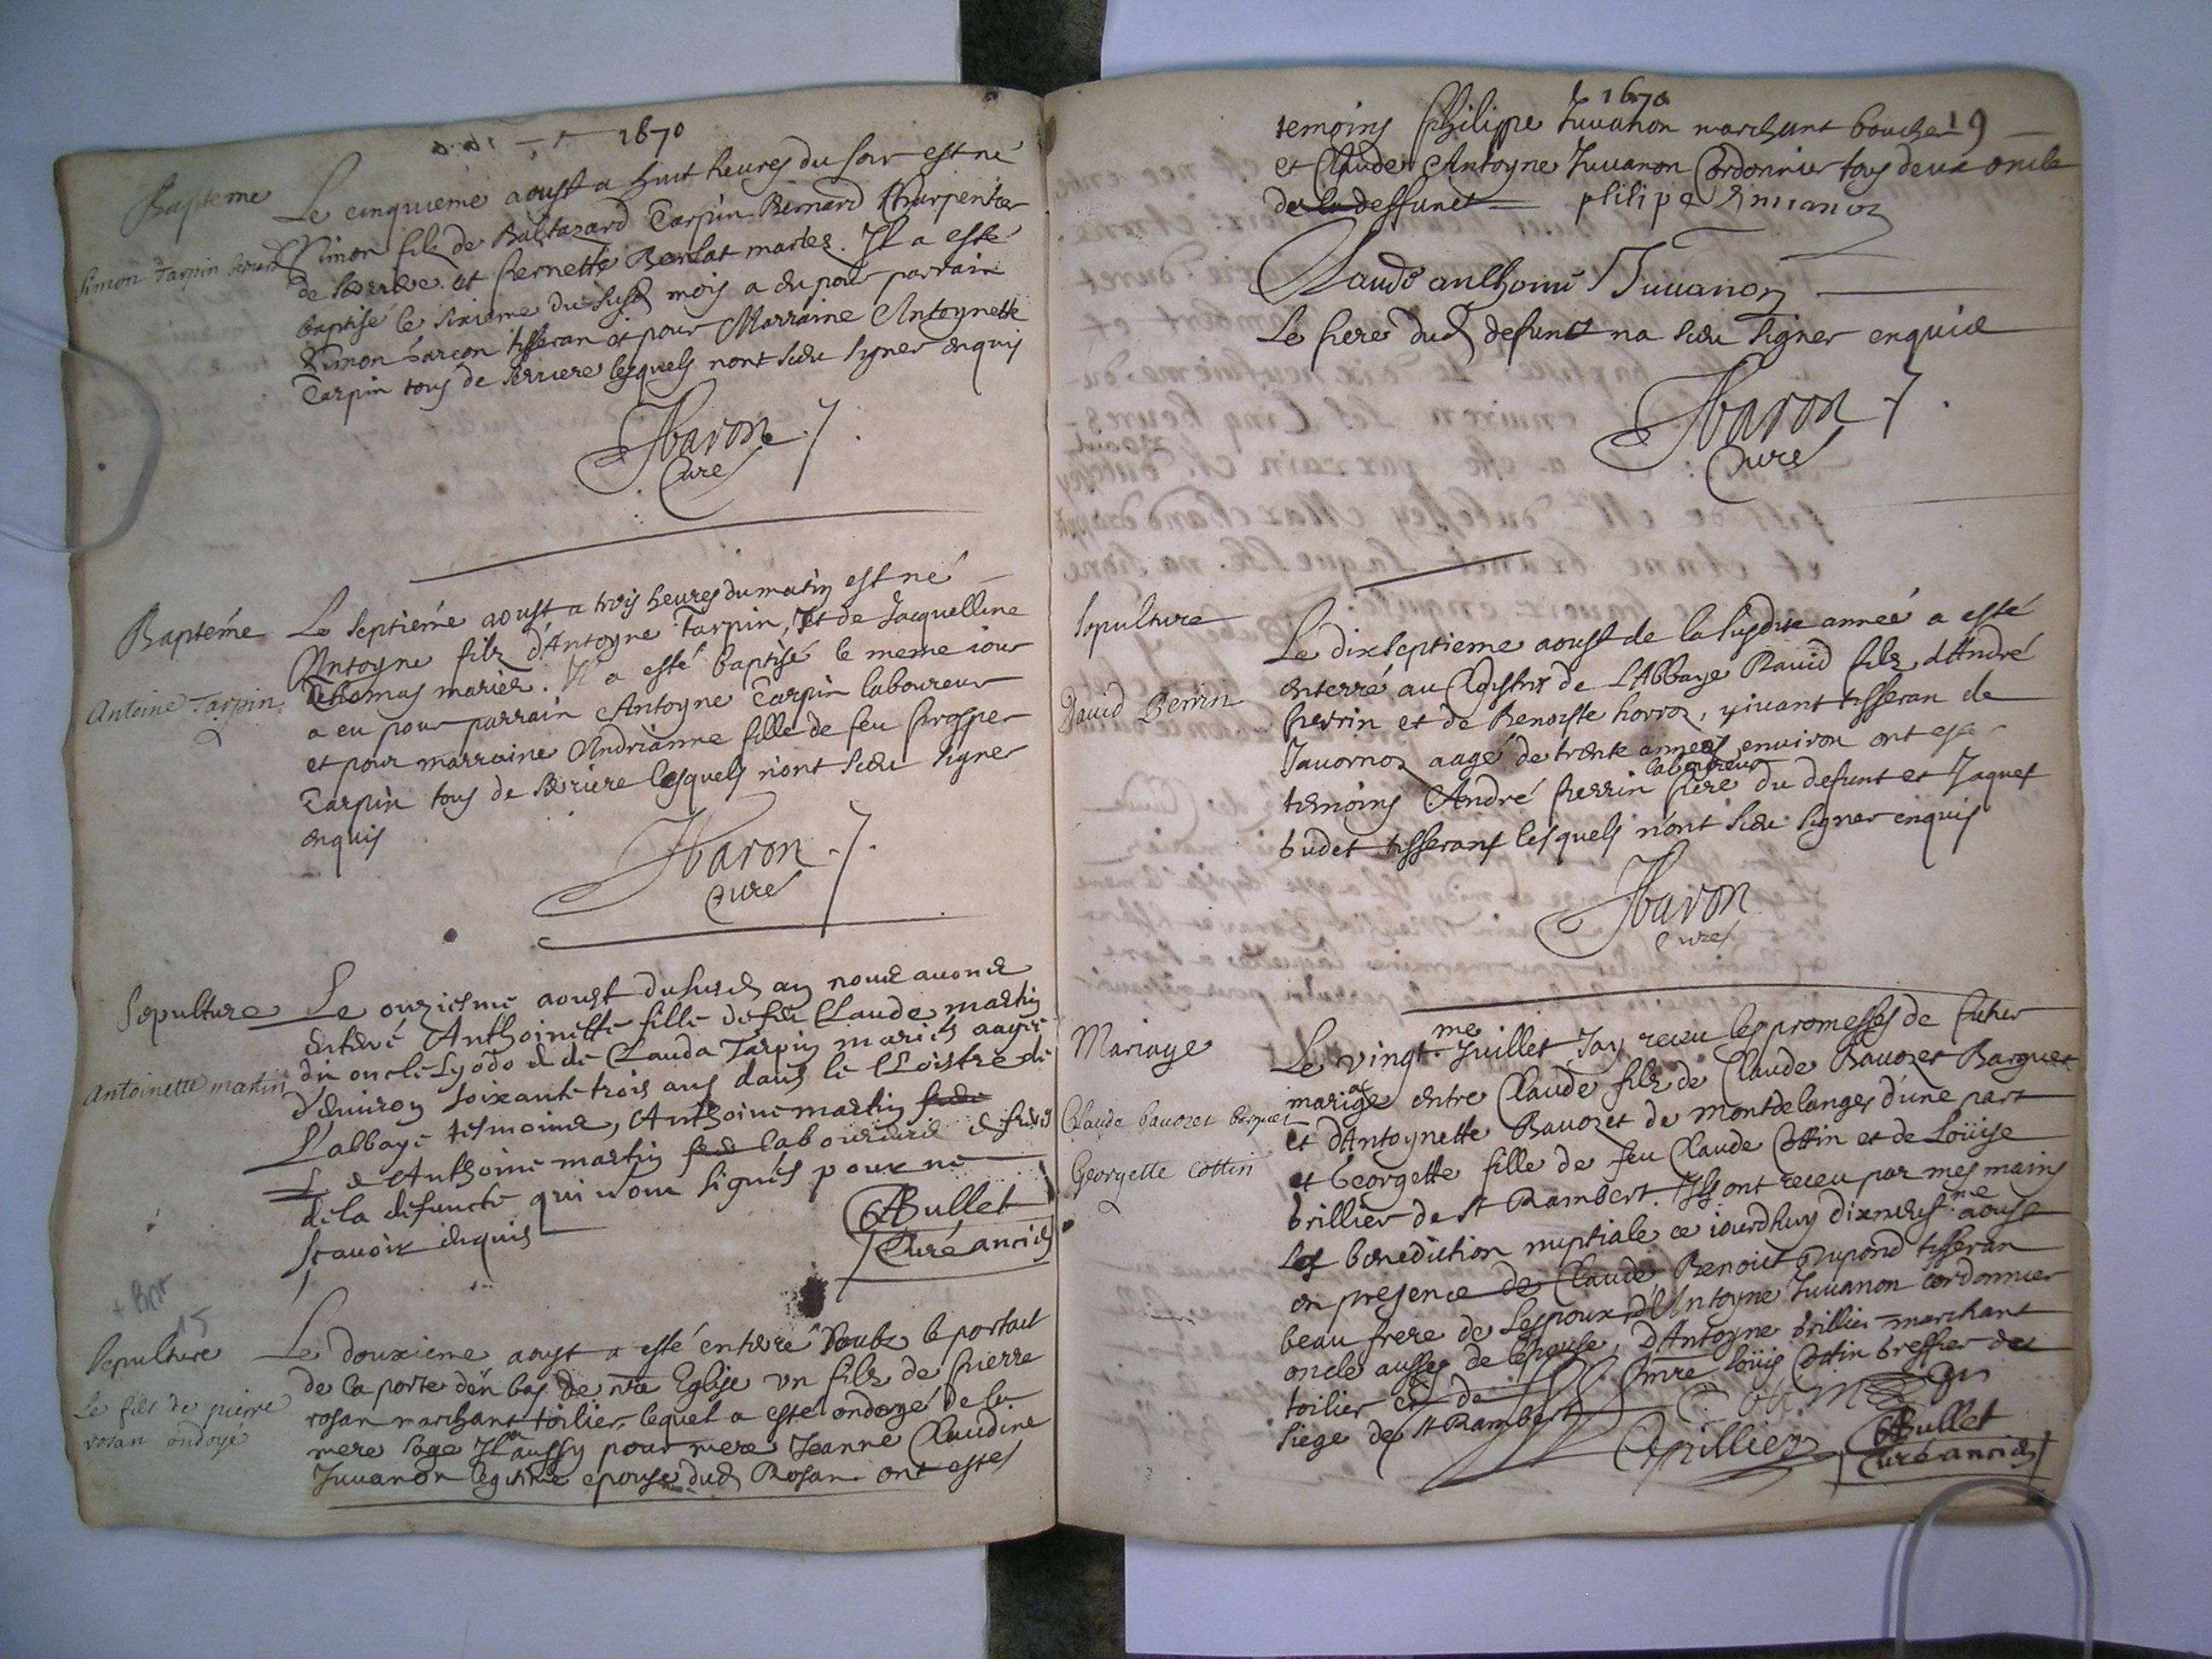 1670
Bapteme
Simon Tarpin bernard
Le cinquieme aoust a huit heures du soir est né
Simon filz de Baltazard Tarpin Bernard Charpentier
de Serriere et pernette Berlat mariez. Il a esté
baptisé le sixieme du susd mois a eu pour parrain
Simon Sarcon tisseran et pour Marraine Antoynette
Tarpin tous de Serriere lesquels nont sceu signer enquis
JBaron
Curé
Baptéme
Antoine Tarpin
Le septiéme aoust a trois heures du matin est né
Antoyne filz d'Antoyne Tarpin, et de Jacquelline
Thomas mariez. Il a esté baptisé le meme iour
a eu pour parrain Antoyne Tarpin laboureur
et pour marraine Andrianne fille de feu prosper
Tarpin tous de Serriere lesquels n'ont sceu signer
enquis
JBaron
Curé
Sepulture
Antoinette martin
Le onziesme aoust du susd an nous auons
enterré Anthoinette fille de feu Claude martin
du oncle et de Clauda Tarpin mariés aagée
d'enuiron soixante trois ans dans le Cloistre de
L'abbaye tesmoins, Anthoine martin
& Anthoine martin laboureurs & freres
de la defuncte qui n'ont signés pour ne
scauoir enquis
ABullet
Curé ancien
+ Bpt
15
Sepulture
Le filz de pierre
rosan ondoyé
Le douxieme aoust a esté enterré soubz le portail
de la porte d'en bas de nre Eglise vn filz de pierre
rosan marchant toilier, lequel a esté ondoyé de la
mere sage Il a aussy pour mere Jeanne Claudine
Juuanon legitime epouse dud Rosan ont estes
1670
19
temoins philippe Juuanon marchant boucher
et Claude Antoyne Juuanon Cordonnier tous deux oncle
de la deffunct philipe Juuanon
Claude anthoine Juuanon
Le pere dud defunct na sceu signer enquis
JBaron
Curé
Sepulture
David Perrin
Le dixseptieme aoust de la susdite anneé a esté
enterré au Cloistre de L'Abbaye Dauid filz d'André
perrin et de Benoiste horroz, viuant tisseran de
Jauornoz aagé de trente annees enuiron ont este
laboureur
temoins André perrin frere du defunt et Jaques
budet tisserans lesquels n'ont sceu signer enquis
JBaron
Curé
Mariage
Claude bauozet barquet
Georgette Cottin
Le vingt.me Juillet Jay receu les promesses de futur
mariage entre Claude filz de Claude Bauozet Barquet
et d'Antoynette Bauozet de montdelanges d'une part
et Georgette fille de feu Claude Cottin et de Loüise
brillier de St Rambert. Ilz ont receu par mes mains
la benediction nuptiale ce iourdhuy dixneuf.me aoust
en presence de Claude Benoict Dupond tisseran
beau frere de Lespoux d'Antoyne Juuanon Cordonnier
oncle aussy de lepouse, d'Antoyne brillier marchant
toilier et de mre loüis Cottin greffier du
siege de St Rambert
Cottin
Brillier
ABullet
Curé ancien